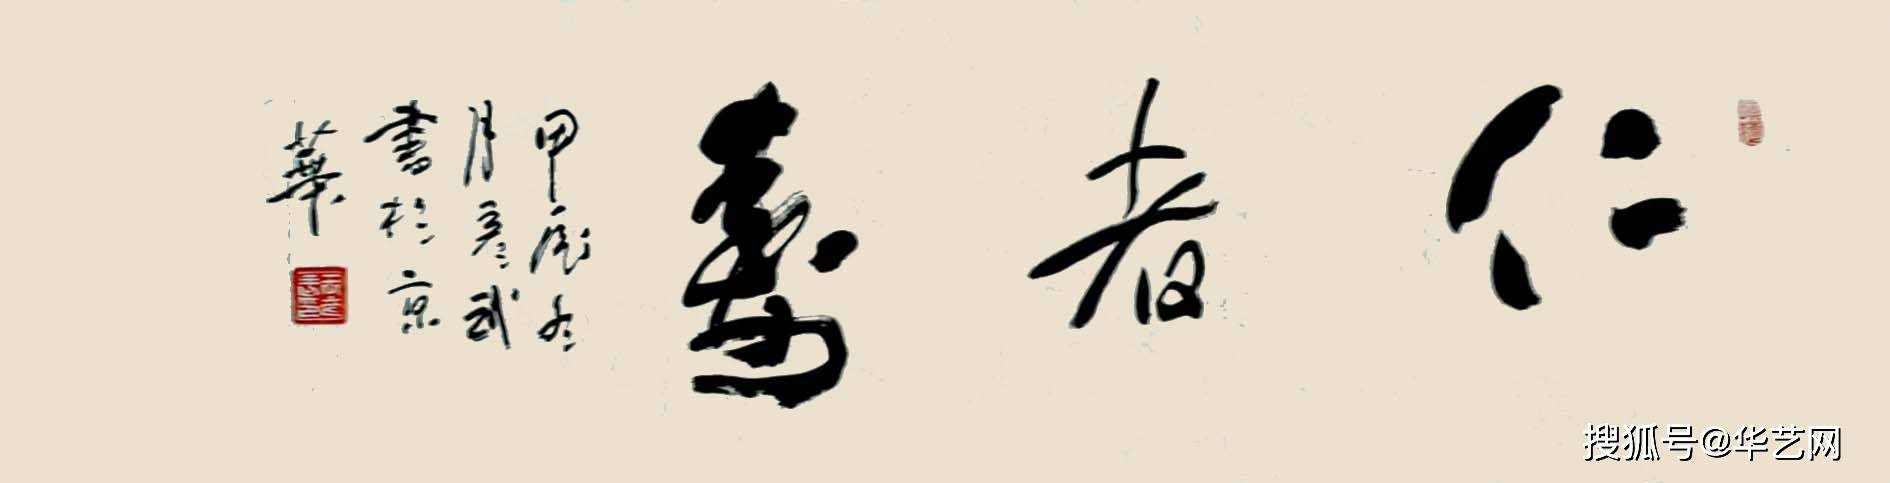 仁者壽
甲辰冬
月彦武
書於京
華
搜狐号@华艺网